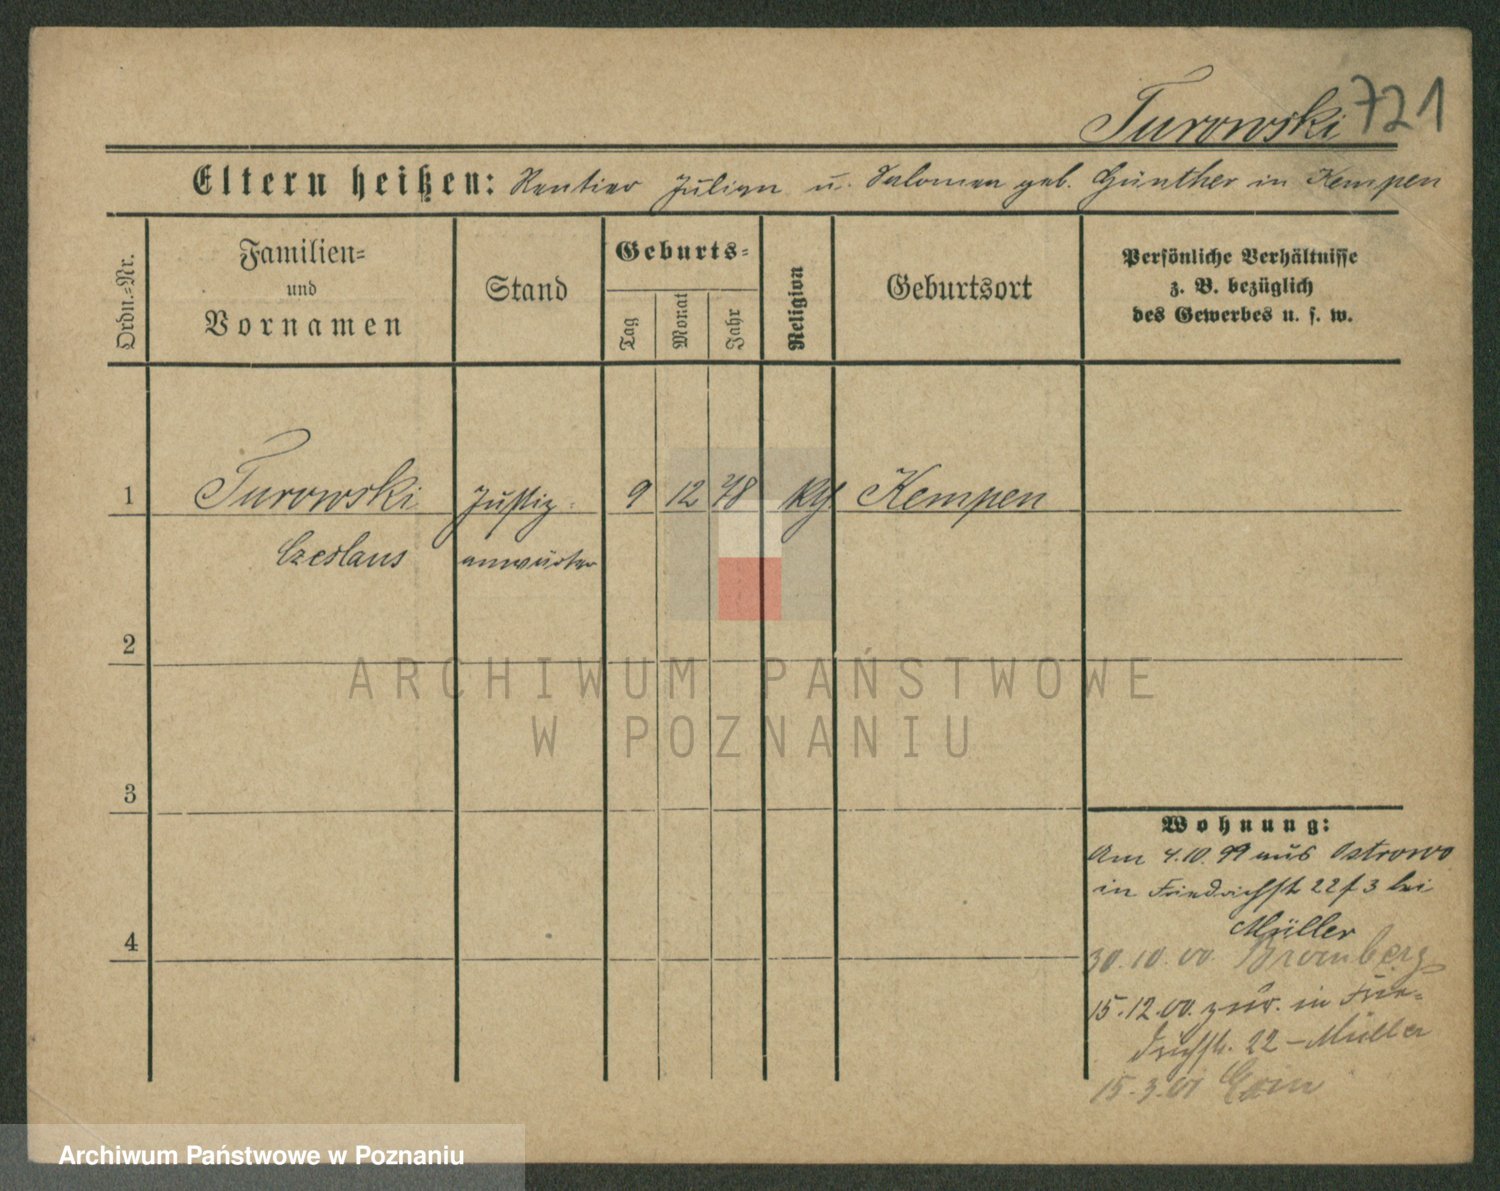 Turowski 721
Eltern heißen: Rentier Julian u. Salomea geb. Günther in Kempen
Ordn.-Nr.
Familien-
und
Vornamen
Stand
Geburts-
Tag
Monat
Jahr
Religion
Geburtsort
Persönliche Verhältnisse
z. B. bezüglich
des Gewerbes u. s. w.
1 Turowski Justiz- 9 12 78 Kempen
Czeslaus anwärter
2
3
4
ARCHIWUM PAŃSTWOWE
W POZNANIU
Wohnung:
Am 4.10.99 aus Ostrowo
in Friedrichst 22 f 3 bei
Müller
30.10.00 Bromberg
15.12.00. zur. in Frie-
drichst. 22 – Müller
15.3.01
Archiwum Państwowe w Poznaniu